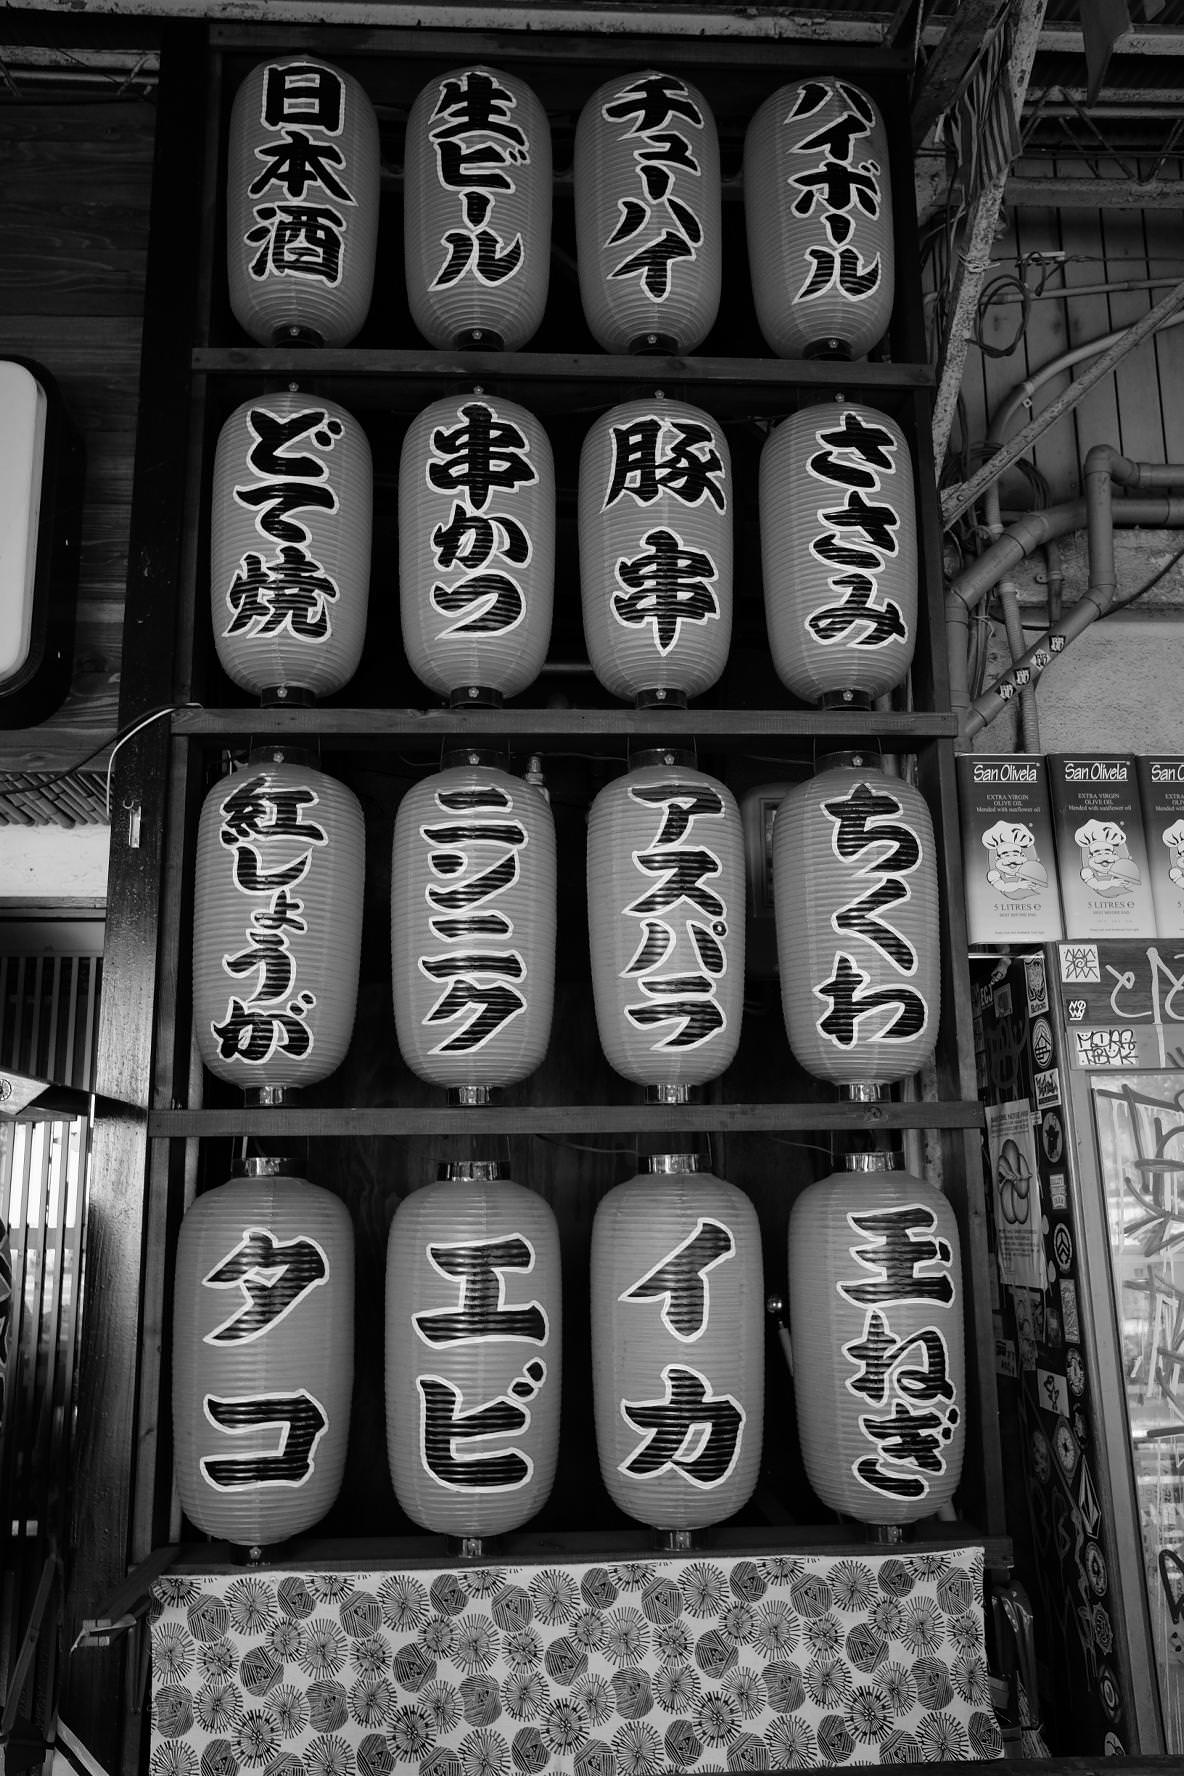 日本酒
生ビール
チューハイ
ハイボール
どて焼
串かつ
豚串
ささみ
紅しょうが
ニンニク
アスパラ
ちくわ
タコ
エビ
イカ
玉ねぎ
San Olivela
EXTRA VIRGIN
OLIVE OIL
Blended with sunflower oil
5 LITRES e
San Olivela
EXTRA VIRGIN
OLIVE OIL
Blended with sunflower oil
5 LITRES e
San O